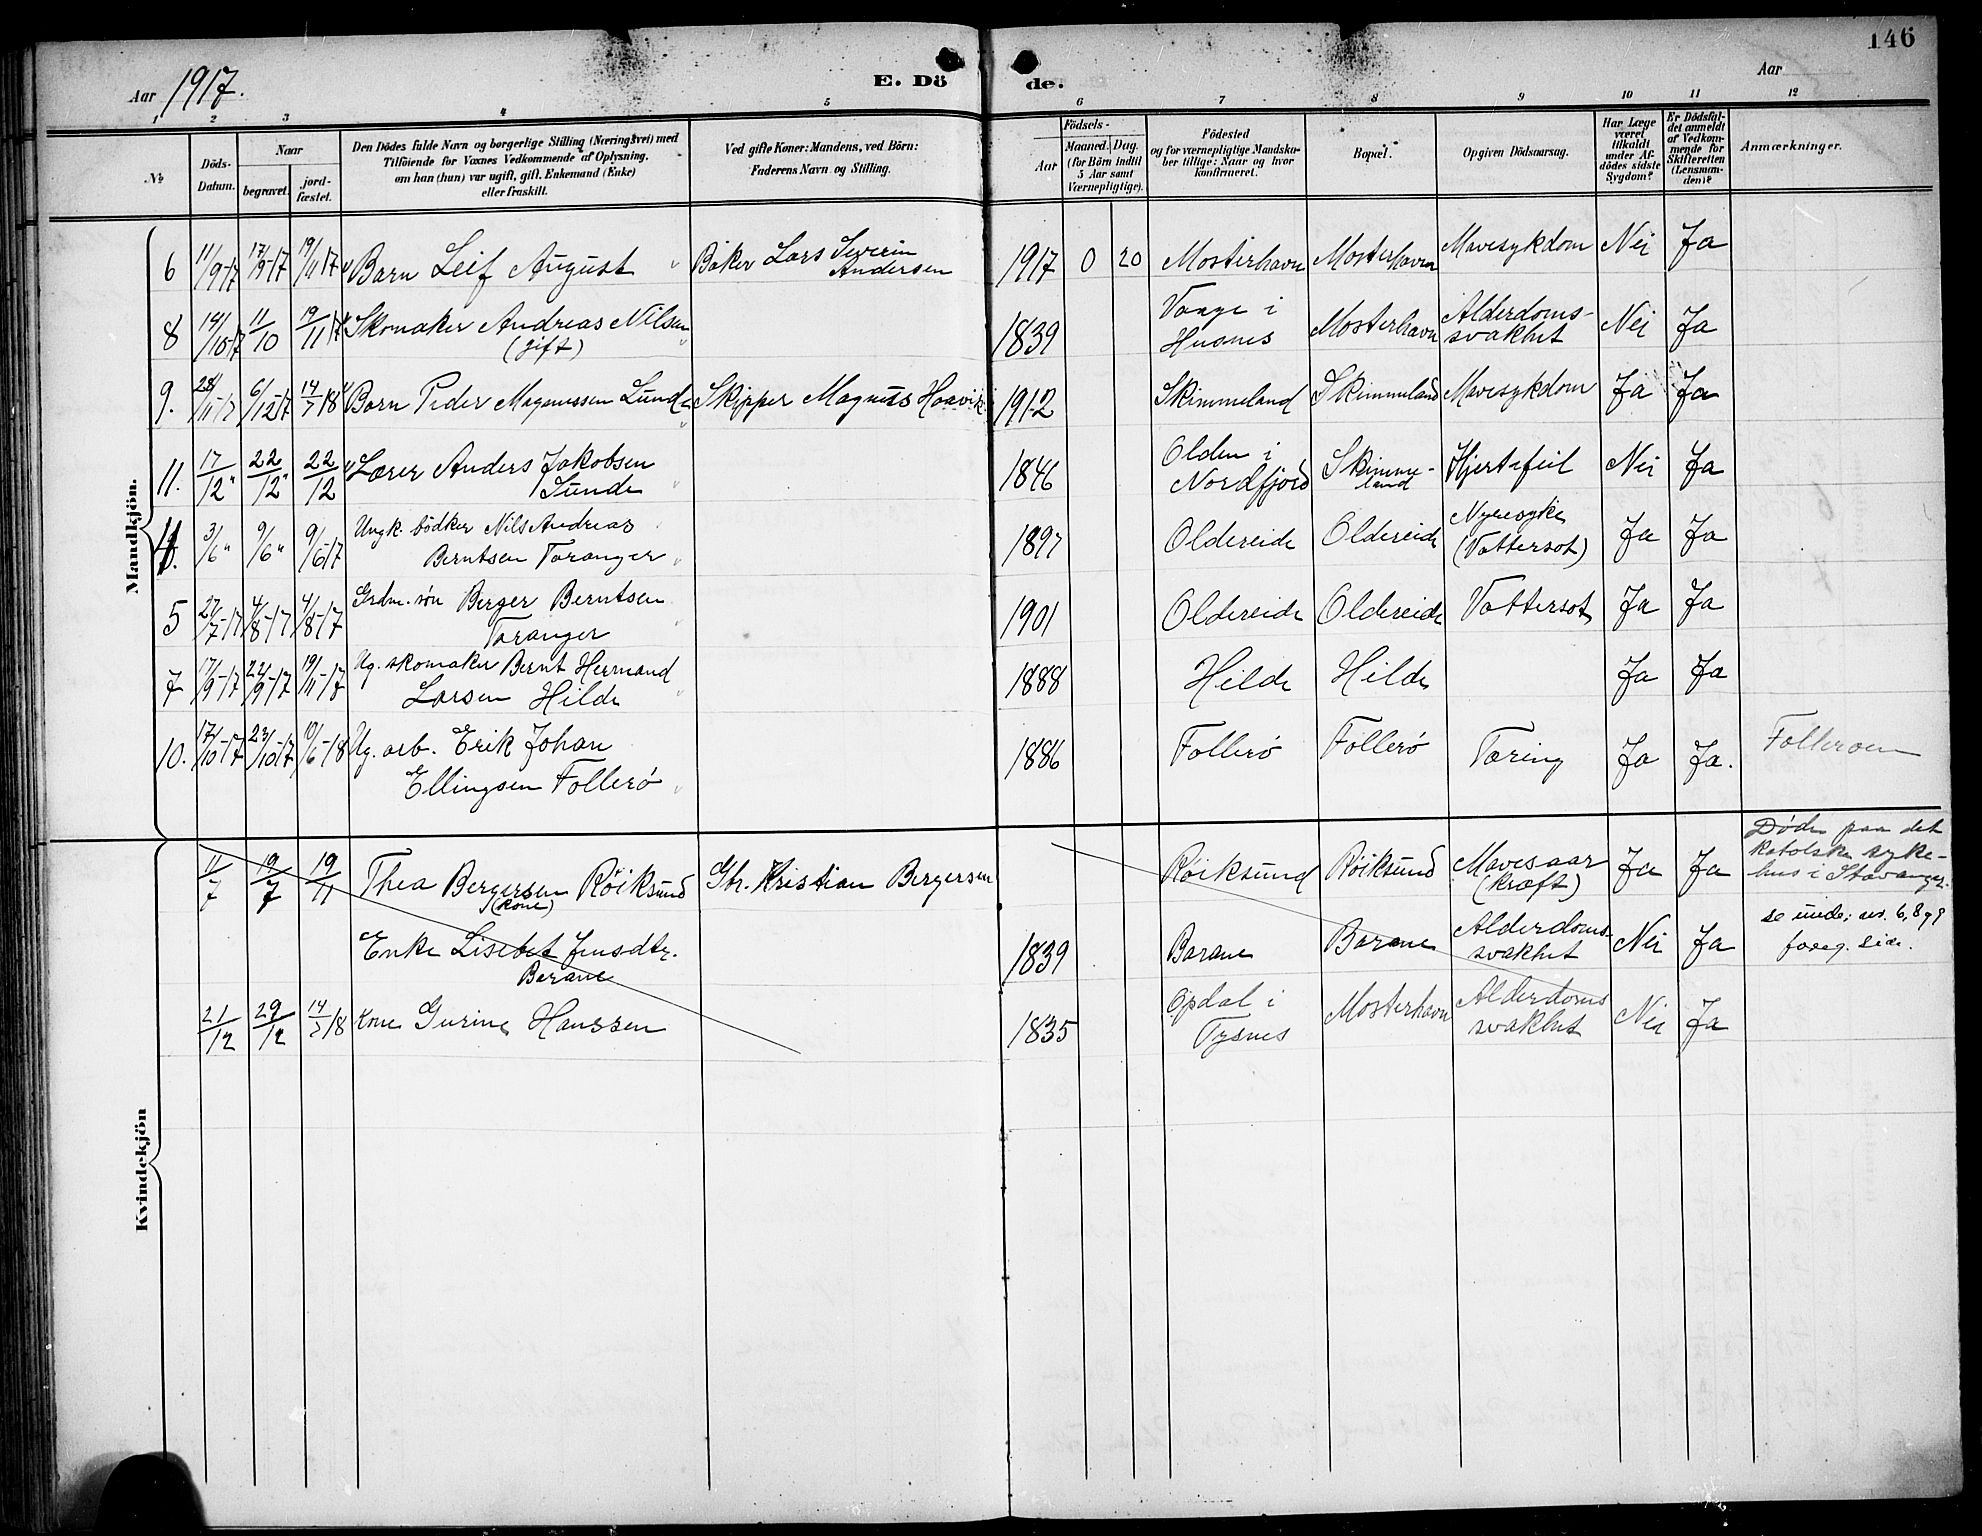 146
Aar 1917.
E. Dö de.
Aar
1 2 3 4 5 6 7 8 9 10 11 12
№
Döds-Datum.
Naar
begravet.
jord-fæstet.
Den Dödes fulde Navn og borgerlige Stilling (Næringsvei) med
Tilföiende for Voxnes Vedkommende af Oplysning.
om han (hun) var ugift, gift. Enkemand (Enke)
eller fraskilt.
Ved gifte Koner: Mandens, ved Börn:
Faderens Navn og Stilling.
Födsels-
Aar
Maaned. Dag.
(for Börn indtil
5 Aar samt
Værnepligtige).
Födested
og for værnepligtige Mandska-
ber tillige: Naar og hvor
konfirmeret.
Bopæl.
Opgiven Dödsaarsag.
Har Læge
været
tilkaldt
under Af-
dödes sidste
Sygdom?
Er Dödsfal-
det anmeldt
af Vedkom-
mende for
Skifteretten
(Lensman-
den)?
Anmærkninger.
Mandkjön.
6 11/9-17 17/9-17 19/11-17 Barn Leif August Bøker Lars Severin Andersen 1917 0 20 Mosterhavn Mosterhavn Mavesykdom Nei Ja
8 14/10-17 11/10 19/11-17 Skomaker Andreas Nilsen
(gift) 1839 Vaage i
Husnes Mosterhavn Alderdoms-
svakhet Nei Ja
9. 28/11-17 6/12-17 14/7-18 Barn Peder Magnussen Lunde Skipper Magnus Haavik 1912 Skimmeland Skimmeland Mavesykdom Ja Ja
11. 17/12 " 22/12 " 22/12 Lærer Anders Jakobsen
Sunde 1846 Olden i
Nordfjord Skimme-
land Hjertefeil Nei Ja
3/6 " 9/6 " 9/6-17 Ungk. bødker Nils Andreas
Berntsen Taranger 1897 Oldereide Oldereide Nyresyke
(Vattersot) Ja Ja
5 27/7-17 4/8-17 4/8-17 Grdm. søn Berger Berntsen
Taranger 1901 Oldereide Oldereide Vattersot Ja Ja
7 17/9-17 22/9-17 19/11-17 Ug. skomaker Bernt Hermand
Larsen Hilde 1888 Hilde Hilde Ja Ja
10. 17/10-17 23/10-17 10/6-18 Ug. arb. Erik Johan
Ellingsen Follerø 1886 Follerø Follerø Tæring Ja Ja. Folleroen
Kvindekjön
11/7 19/7 19/11 Thea Bergersen Røiksund
(kone) Gbr. Kristian Bergersen Røiksund Røiksund Mavesaar
(kræft) Ja Ja Døde paa det
katolske syke-
hus i Stavanger.
Enke Lisebet Jensdtr.
Barane 1839 Barane Barane Alderdoms-
svakhet Nei Ja se unde; nr. 6, 8 og 9
foreg. side.
21/12 29/12 14/7-18 Kone Gurine Hanssen 1835 Opdal i
Tysnes Mosterhavn Alderdoms
svakhet Nei Ja